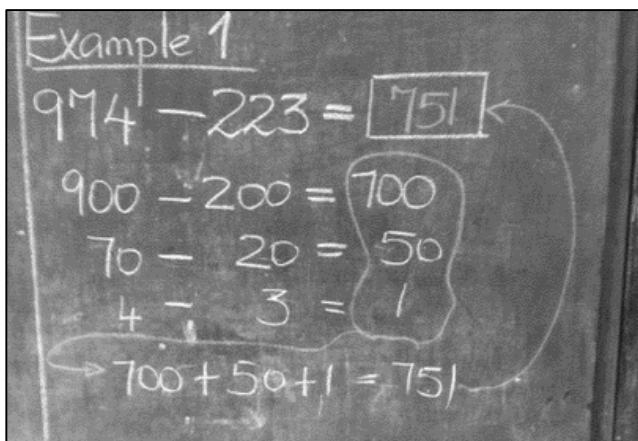 Example 1
974 - 223 = 751
900 - 200 = 700
70 - 20 = 50
4 - 3 = 1
700 + 50 + 1 = 751